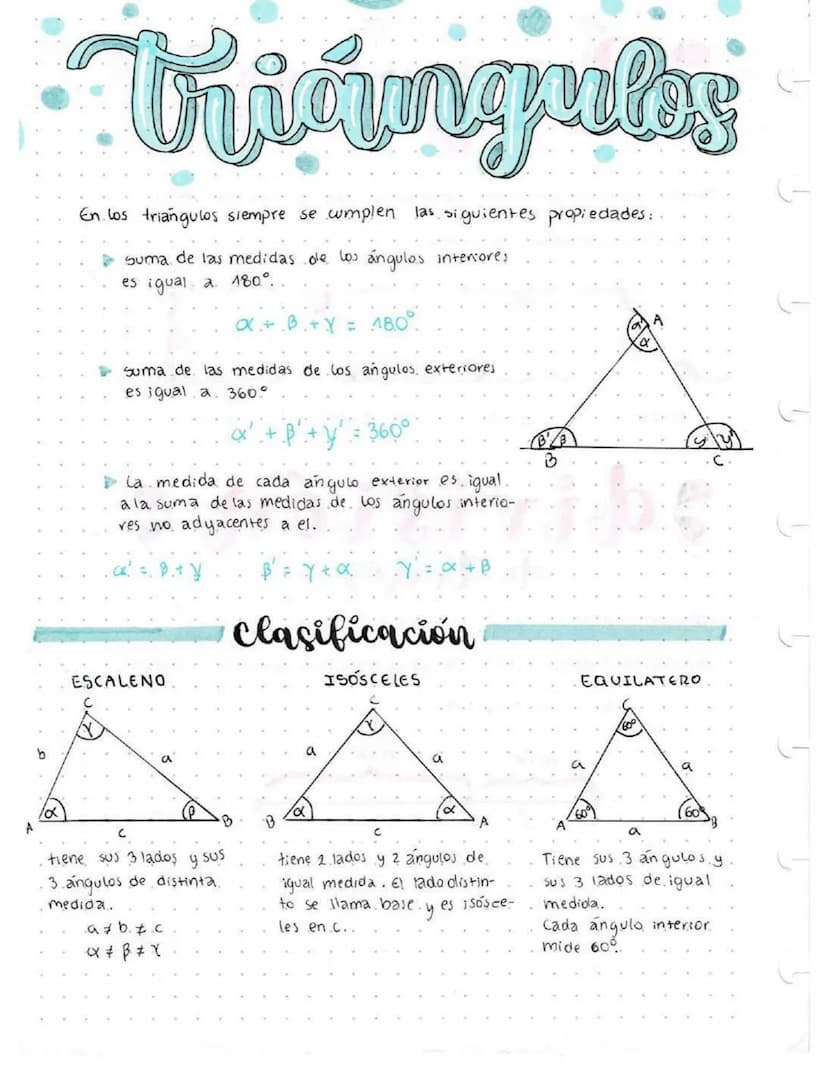 Triángulos
En los triángulos siempre se cumplen las siguientes propiedades:
suma de las medidas de los ángulos interiores
es igual a 180°.
α + β + γ = 180°
suma de las medidas de los ángulos exteriores
es igual a 360°
α' + β' + γ' = 360°
La medida de cada ángulo exterior es igual
a la suma de las medidas de los ángulos interio-
res no adyacentes a el.
α' = β + γ β' = γ + α γ' = α + β
α' A
α
β' β γ γ'
B C
Clasificación
ESCALENO ISÓSCELES EQUILATERO
C C C
γ γ 60°
b a a a a a
α β α α 60° 60°
A B B A A B
c c a
tiene sus 3 lados y sus
3 ángulos de distinta
medida.
a ≠ b ≠ c
α ≠ β ≠ γ
tiene 2 lados y 2 ángulos de
igual medida. El lado distin-
to se llama base y es isósce-
les en c.
Tiene sus 3 ángulos y
sus 3 lados de igual
medida.
Cada ángulo interior
mide 60°.